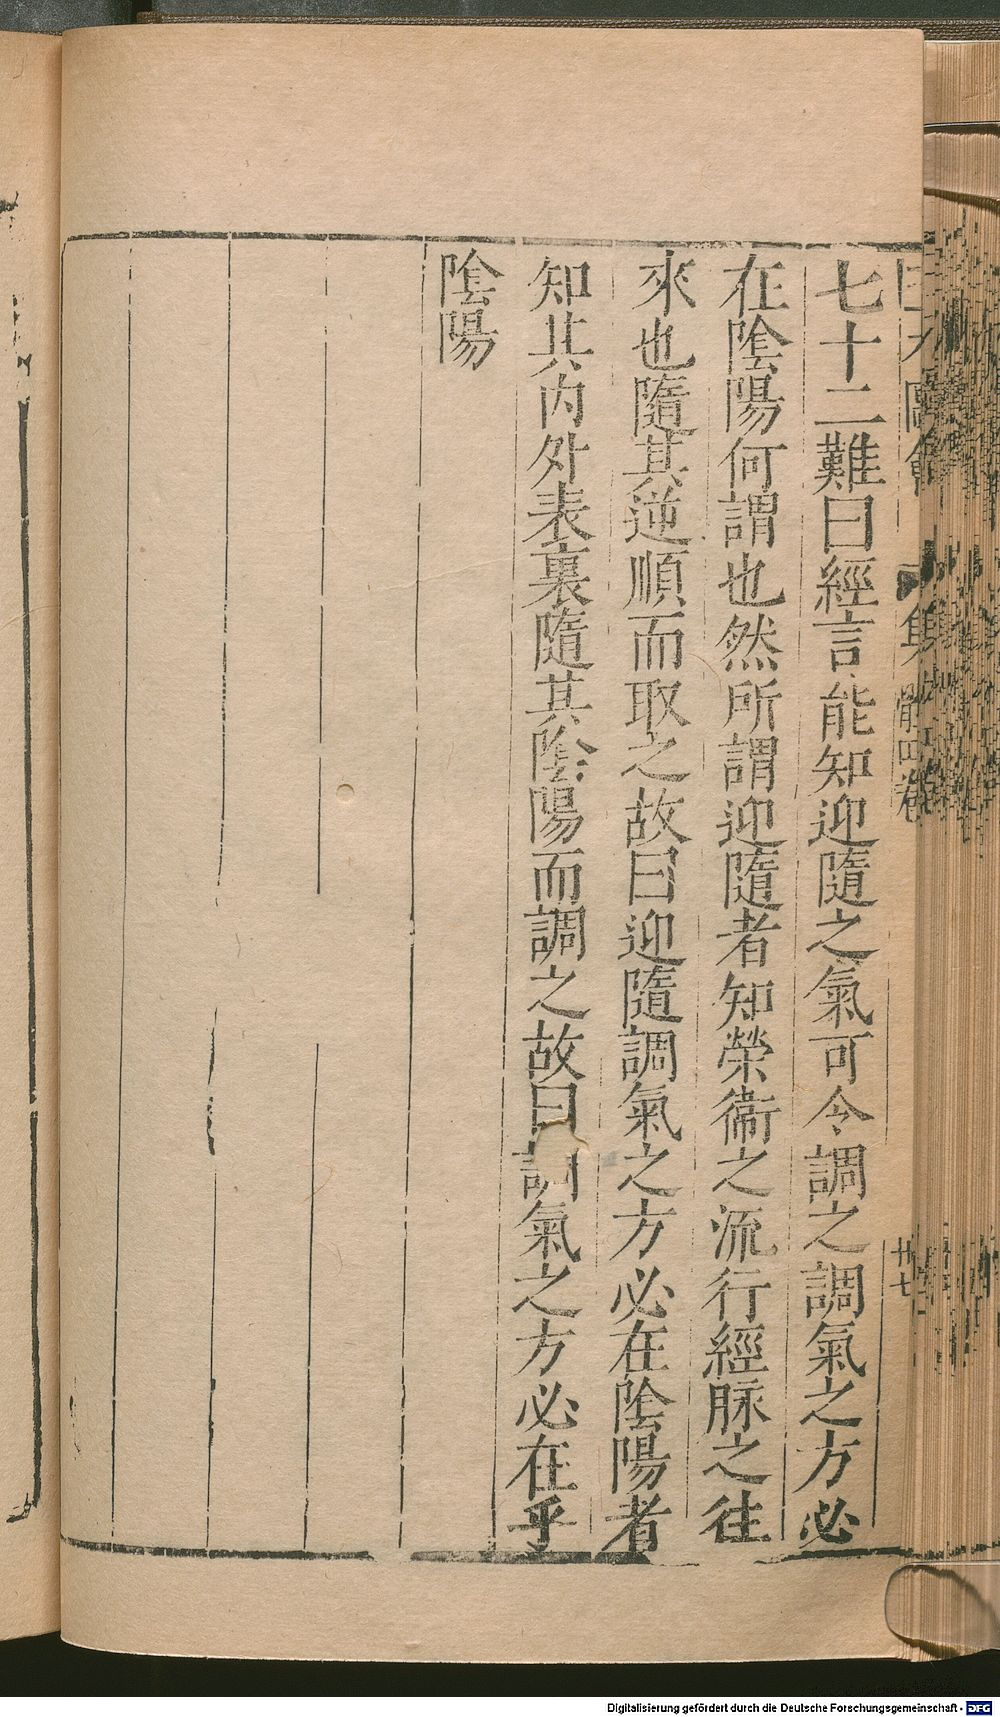 七十二難曰經言能知迎隨之氣可令調之調氣之方必
在陰陽何謂也然所謂迎隨者知榮衞之流行經脉之往
來也隨其逆順而取之故曰迎隨調氣之方必在陰陽者
知其内外表裏隨其陰陽而調之故曰調氣之方必在乎
陰陽
四卷
廿七
Digitalisierung gefördert durch die Deutsche Forschungsgemeinschaft - DFG